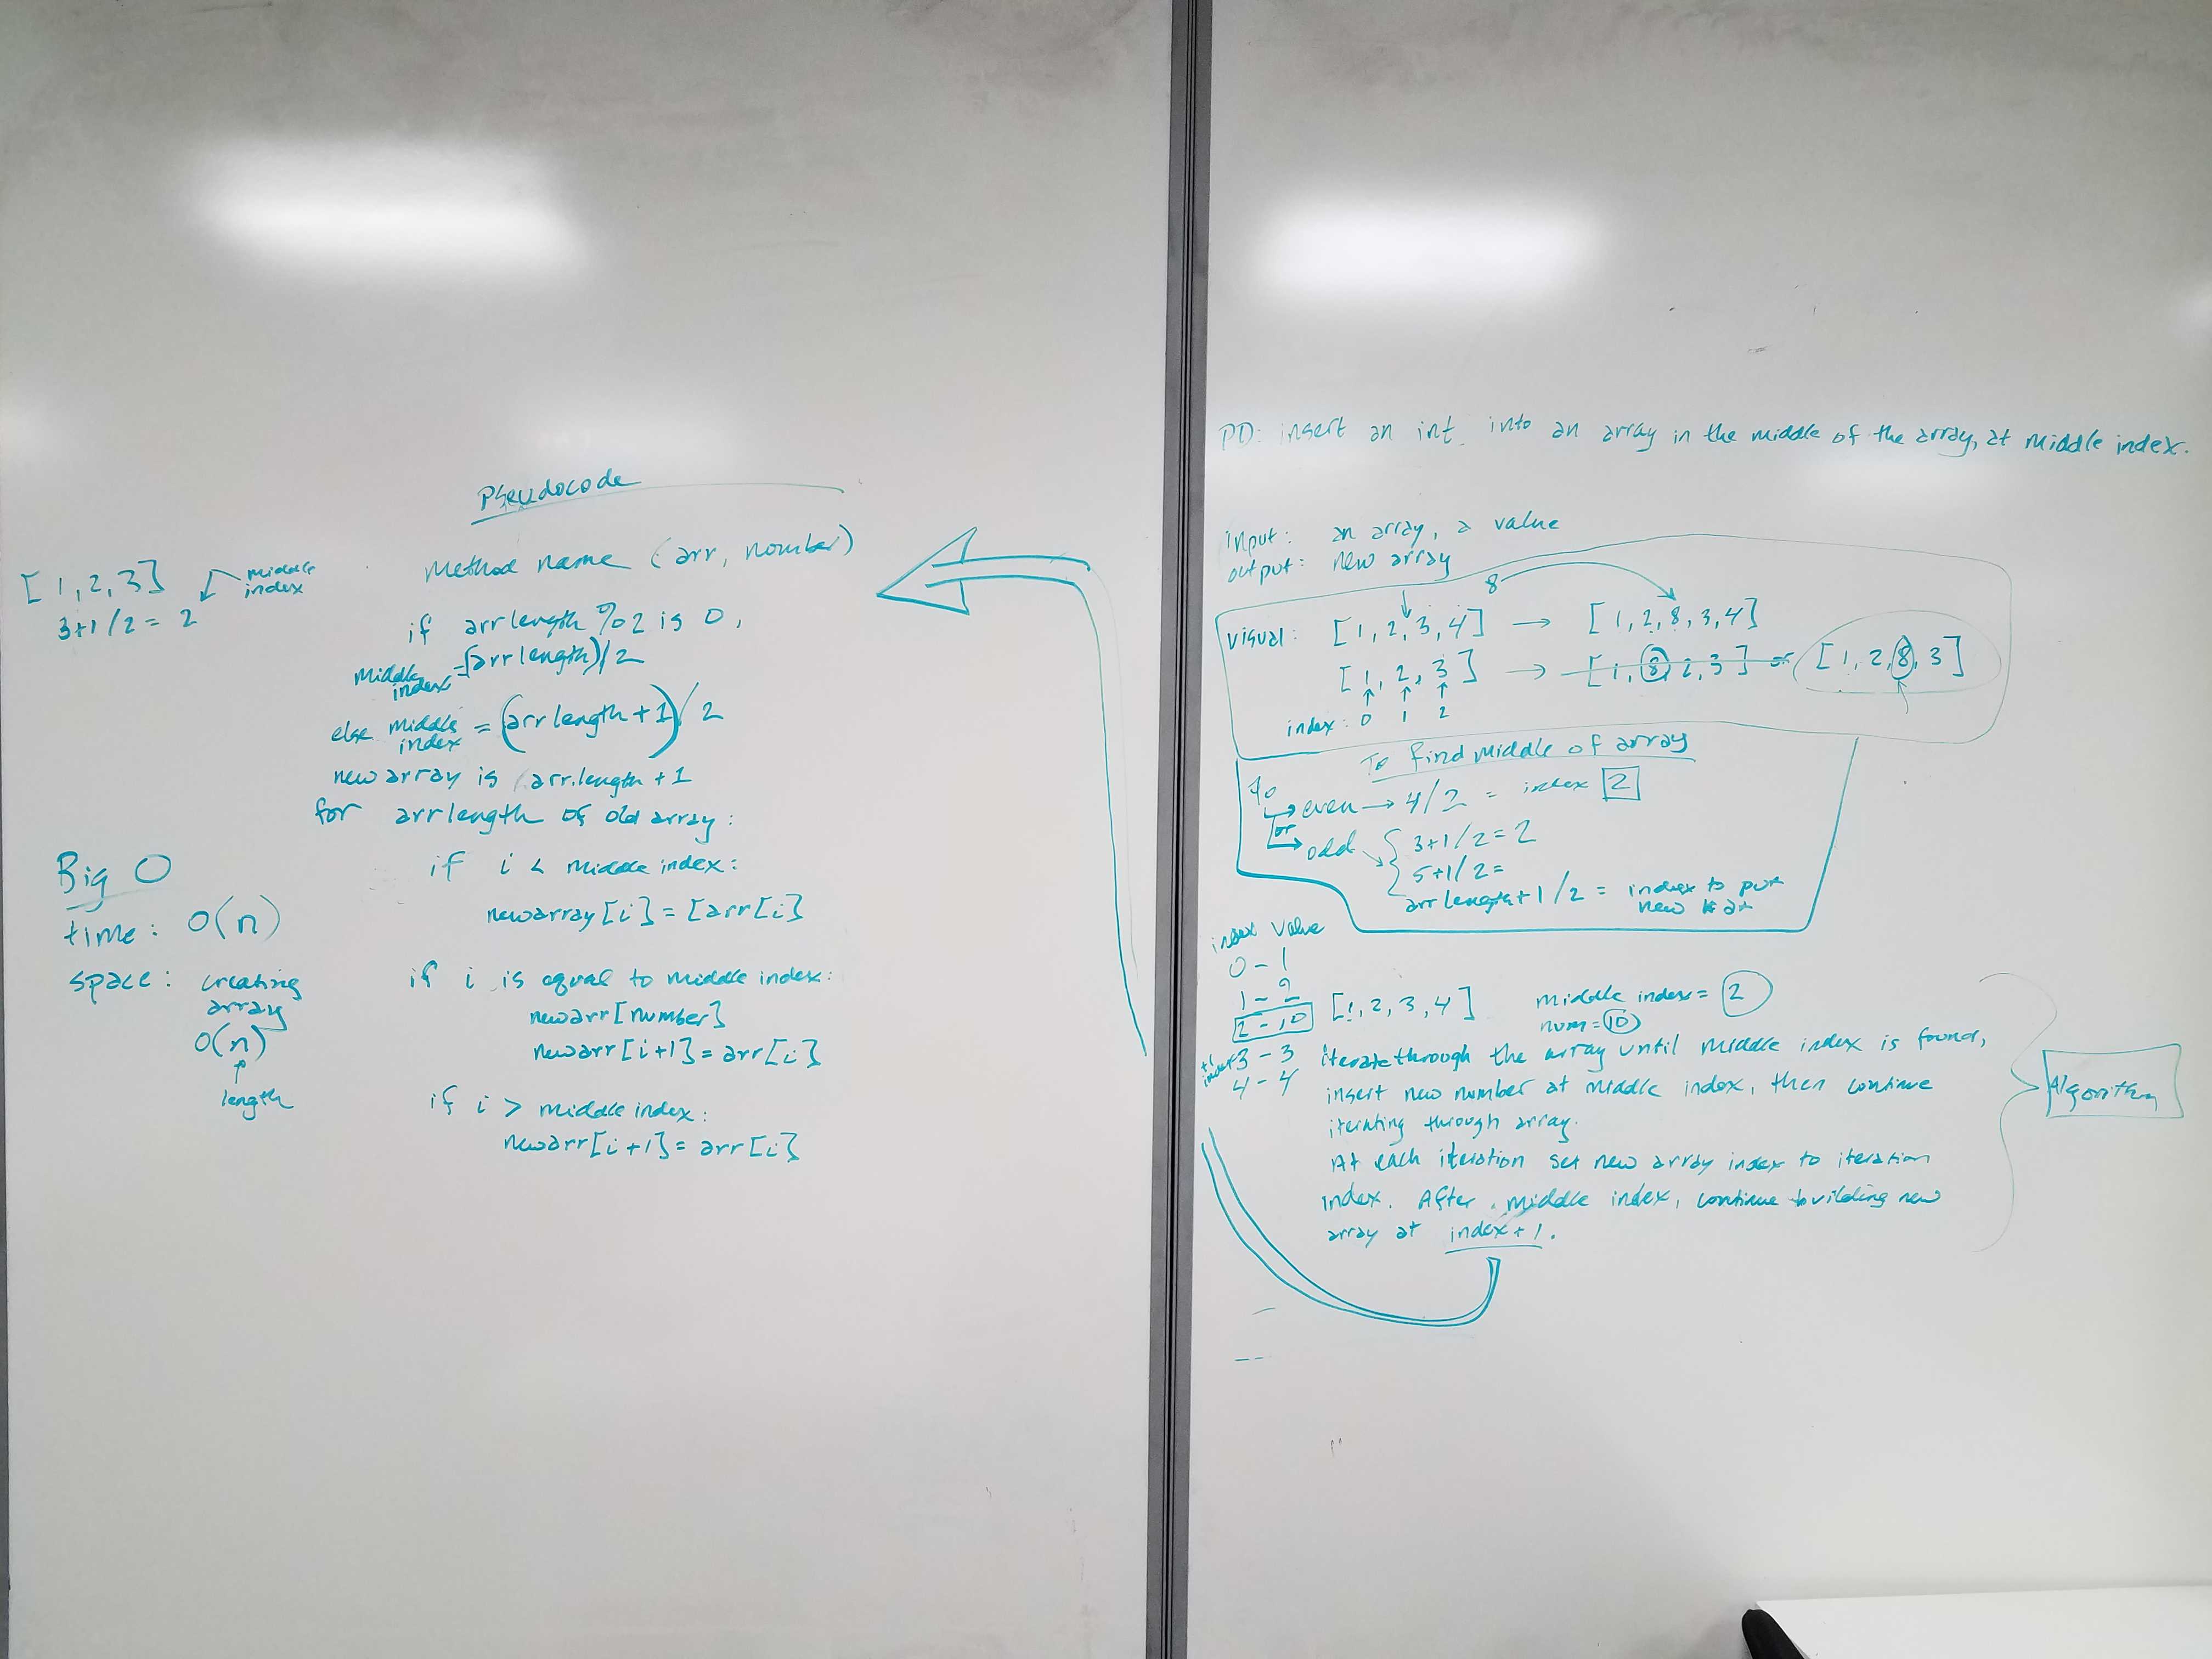 Pseudocode
Method name (arr, number)
[1, 2, 3]
middle
index
3+1/2 = 2
if arr length %2 is 0,
middle
index
=(arr length)/2
else middle
index
= (arr length + 1)/2
new array is arr.length + 1
for arr length of old array:
if i < middle index:
newarray[i] = [arr[i]
if i is equal to middle index:
newarr[number]
newarr[i+1] = arr[i]
if i > middle index:
newarr[i+1] = arr[i]
Big O
time: O(n)
space: creating
array
O(n)
length
PD: insert an int into an array in the middle of the array, at middle index.
input: an array, a value
output: new array
8
visual: [1, 2, 3, 4] → [1, 2, 8, 3, 4]
[1, 2, 3] → [1, 8, 2, 3] or [1, 2, 8, 3]
index: 0 1 2
To find middle of array
%
even → 4/2 = index 2
or
odd
3+1/2 = 2
5+1/2 =
arr length+1/2 = index to put
new # at
index value
0 - 1
1 - 2
2 - 10
3 - 3
4 - 4
+1
index
[1, 2, 3, 4] middle index = 2
num = 10
iterate through the array until middle index is found,
insert new number at middle index, then continue
iterating through array.
At each iteration set new array index to iteration
index. After middle index, continue building new
array at index + 1.
Algorithm